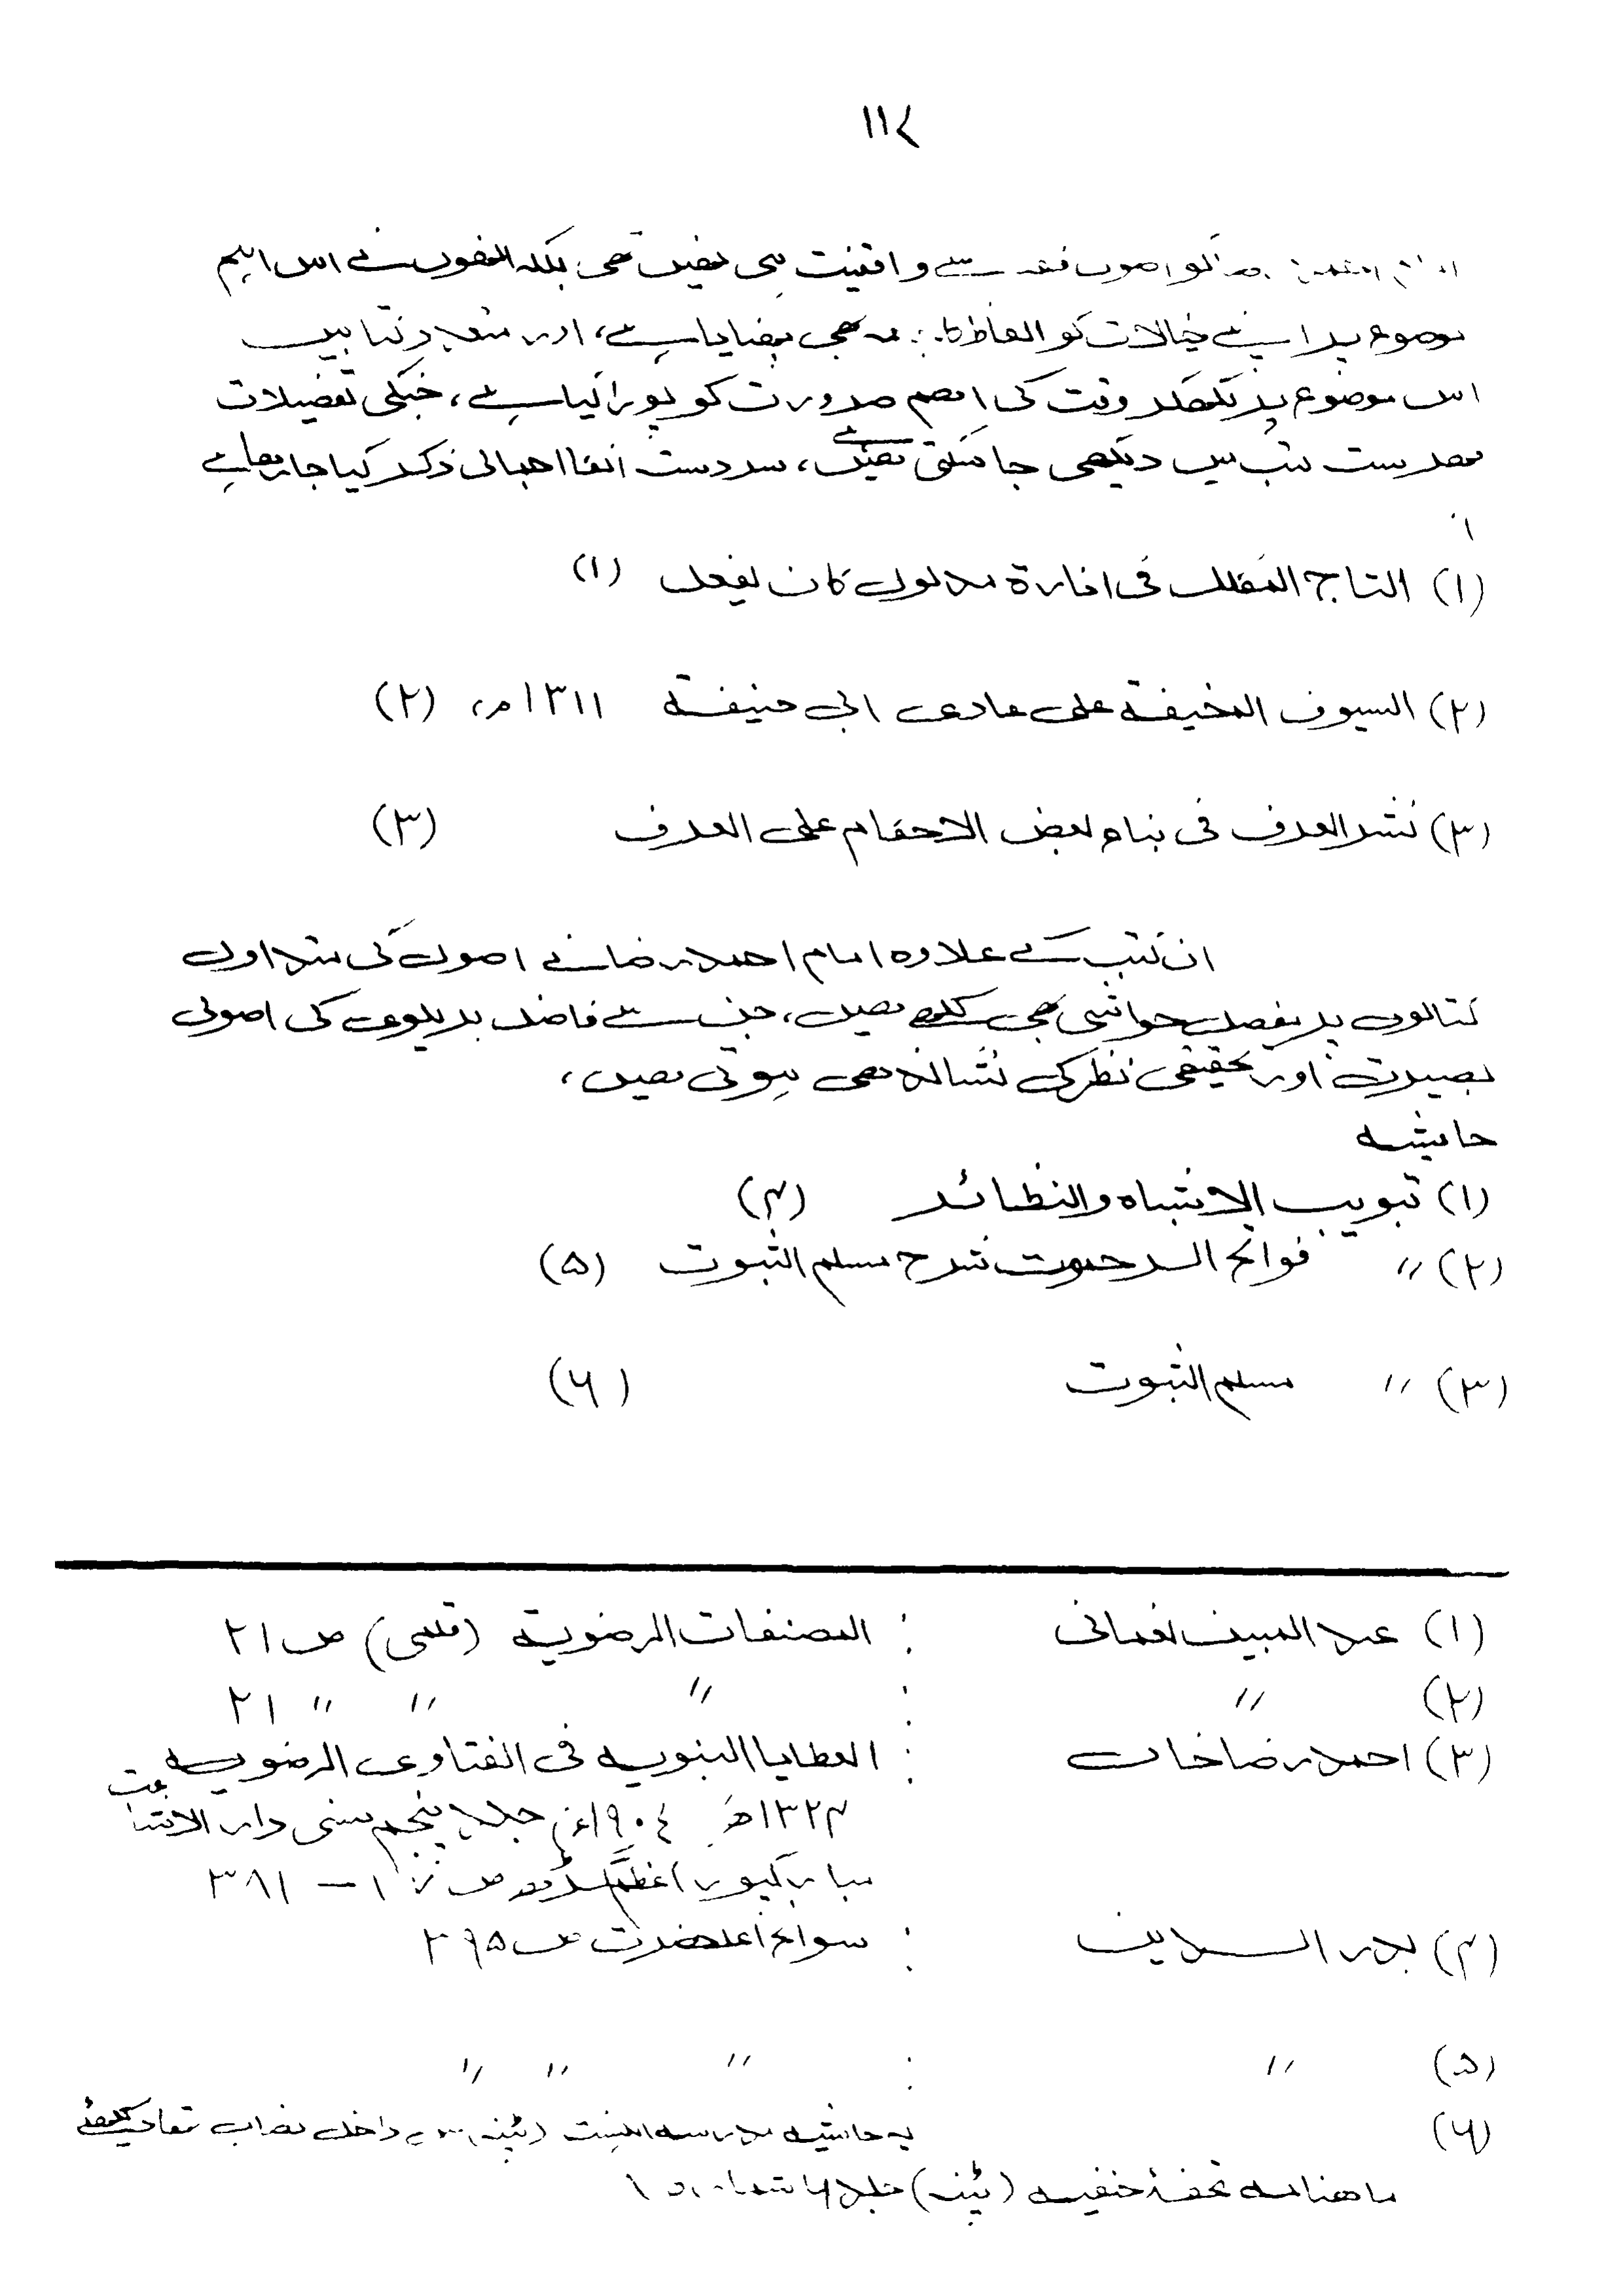 ۱۱۷
کو اصول فقہ سے واقفیت ہی نھیں تھی بلکہ انھوں نے اس اہم
موضوع پر اپنے خیالات کو الفاظ کا جامہ بھی پہنایا ہے، اور متعدد کتابیں
اس موضوع پر لکھکر وقت کی اھم ضرورت کو پورا کیا ہے، جنکی تفصیلات
فھرست کتب میں دیکھی جا سکتی ھیں، سردست انکا اجمالی ذکر کیا جا رھا ہے
(۱) التاج المکلل فی انارة مدلول کان یفعل (۱)
(۲) السیوف المخیفة علی عادی ابی حنیفة ۱۳۱۱ھ (۲)
(۳) نشر العرف فی بناء بعض الاحکام علی العرف (۳)
ان کتب کے علاوہ امام احمد رضا نے اصول کی متداول
کتابوں پر مفصل حواشی بھی لکھے ھیں، جن سے فاضل بریلوی کی اصولی
بصیرت اور تحقیقی نظر کی نشاندھی ہوتی ھیں،
حاشیہ
(۱) تبویب الاشباہ والنظائر (۴)
(۲) // فواتح الرحموت شرح مسلم الثبوت (۵)
(۳) // مسلم الثبوت (۶)
(۱) عبد المبین نعمانی : المصنفات الرضویة (قلمی) ص ۲۱
(۲) // : // // // ۲۱
(۳) احمد رضا خاں : العطایا النبویہ فی الفتاوی الرضویہ
۱۳۲۴ھ ۱۹۰۴ء جلد پنجم سنی دار الاشاعت
مبارکپور اعظم گڑھ ص ۱ – ۳۸۱
(۴) بدر الدین : سوانح اعلحضرت ص ۳۹۵
(۵) // : // // //
(۶) یہ حاشیہ مدرسہ اہلسنت (پٹنہ) میں داخل نصاب تھا دیکھئے
ماھنامہ تحفۂ حنفیہ (پٹنہ) جلد ۶ شمارہ